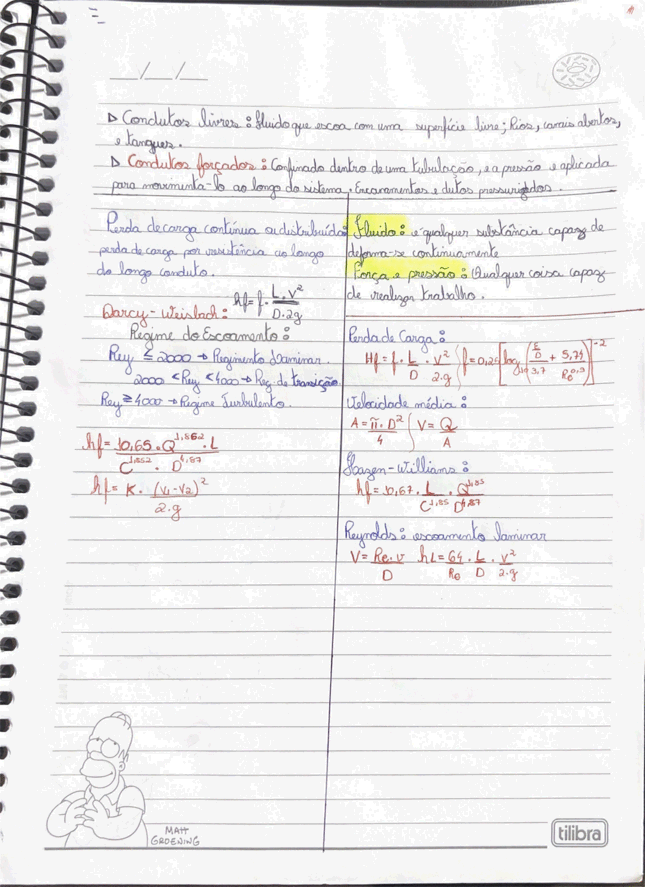 __/__/__
▷ Condutos livres: Fluido que escoa com uma superfície livre; Rios, canais abertos,
e tanques.
▷ Condutos forçados: Confinado dentro de uma tubulação, e a pressão e aplicada
para movimenta-lo ao longo do sistema. Encanamentos e dutos pressurizados.
Perda de carga contínua ou distribuída:
perda de carga por resistência ao longo
do longo conduto.
Darcy-Weisbach: hf = f · L · V² / D · 2g
Regime do Escoamento:
Rey ≤ 2000 → Regimento Laminar.
2000 < Rey < 4000 → Reg. de transição
Rey ≥ 4000 → Regime Turbulento.
hf = 10,65 · Q^1,852 · L / C^1,852 · D^4,87
hf = K · (V1 - V2)² / 2·g
Fluido: e qualquer substância capaz de
deforma-se continuamente
Força e pressão: Qualquer coisa capaz
de realizar trabalho.
Perda de Carga:
Hf = f · L/D · V²/2·g } f = 0,25 [log10 (E/D / 3,7 + 5,74 / Re^0,9)]^-2
Velocidade média:
A = π · D² / 4 } V = Q / A
Hazen-Williams:
hf = 10,67 · L / C^1,85 · Q^1,85 / D^4,87
Reynolds: escoamento laminar
V = Re · v / D hL = 64/Re · L/D · V²/2·g
MATT
GROENING
tilibra